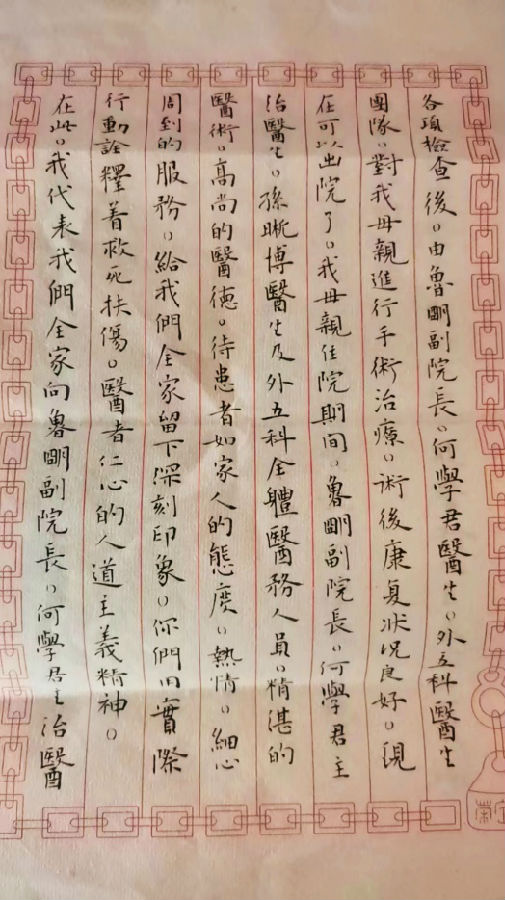 各項檢查後。由魯明副院長。何學君醫生。外五科醫生
團隊。對我母親進行手術治療。術後康复狀況良好。現
在可以出院了。我母親住院期间。魯明副院長。何學君主
治醫生。孫晰博醫生及外五科全體醫務人員。精湛的
醫術。高尚的醫德。待患者如家人的態度。熱情。細心
周到的服務。給我們全家留下深刻印象。你們用實際
行動詮釋着救死扶傷。醫者仁心的人道主義精神。
在此。我代表我們全家向魯明副院長。何學君主治醫